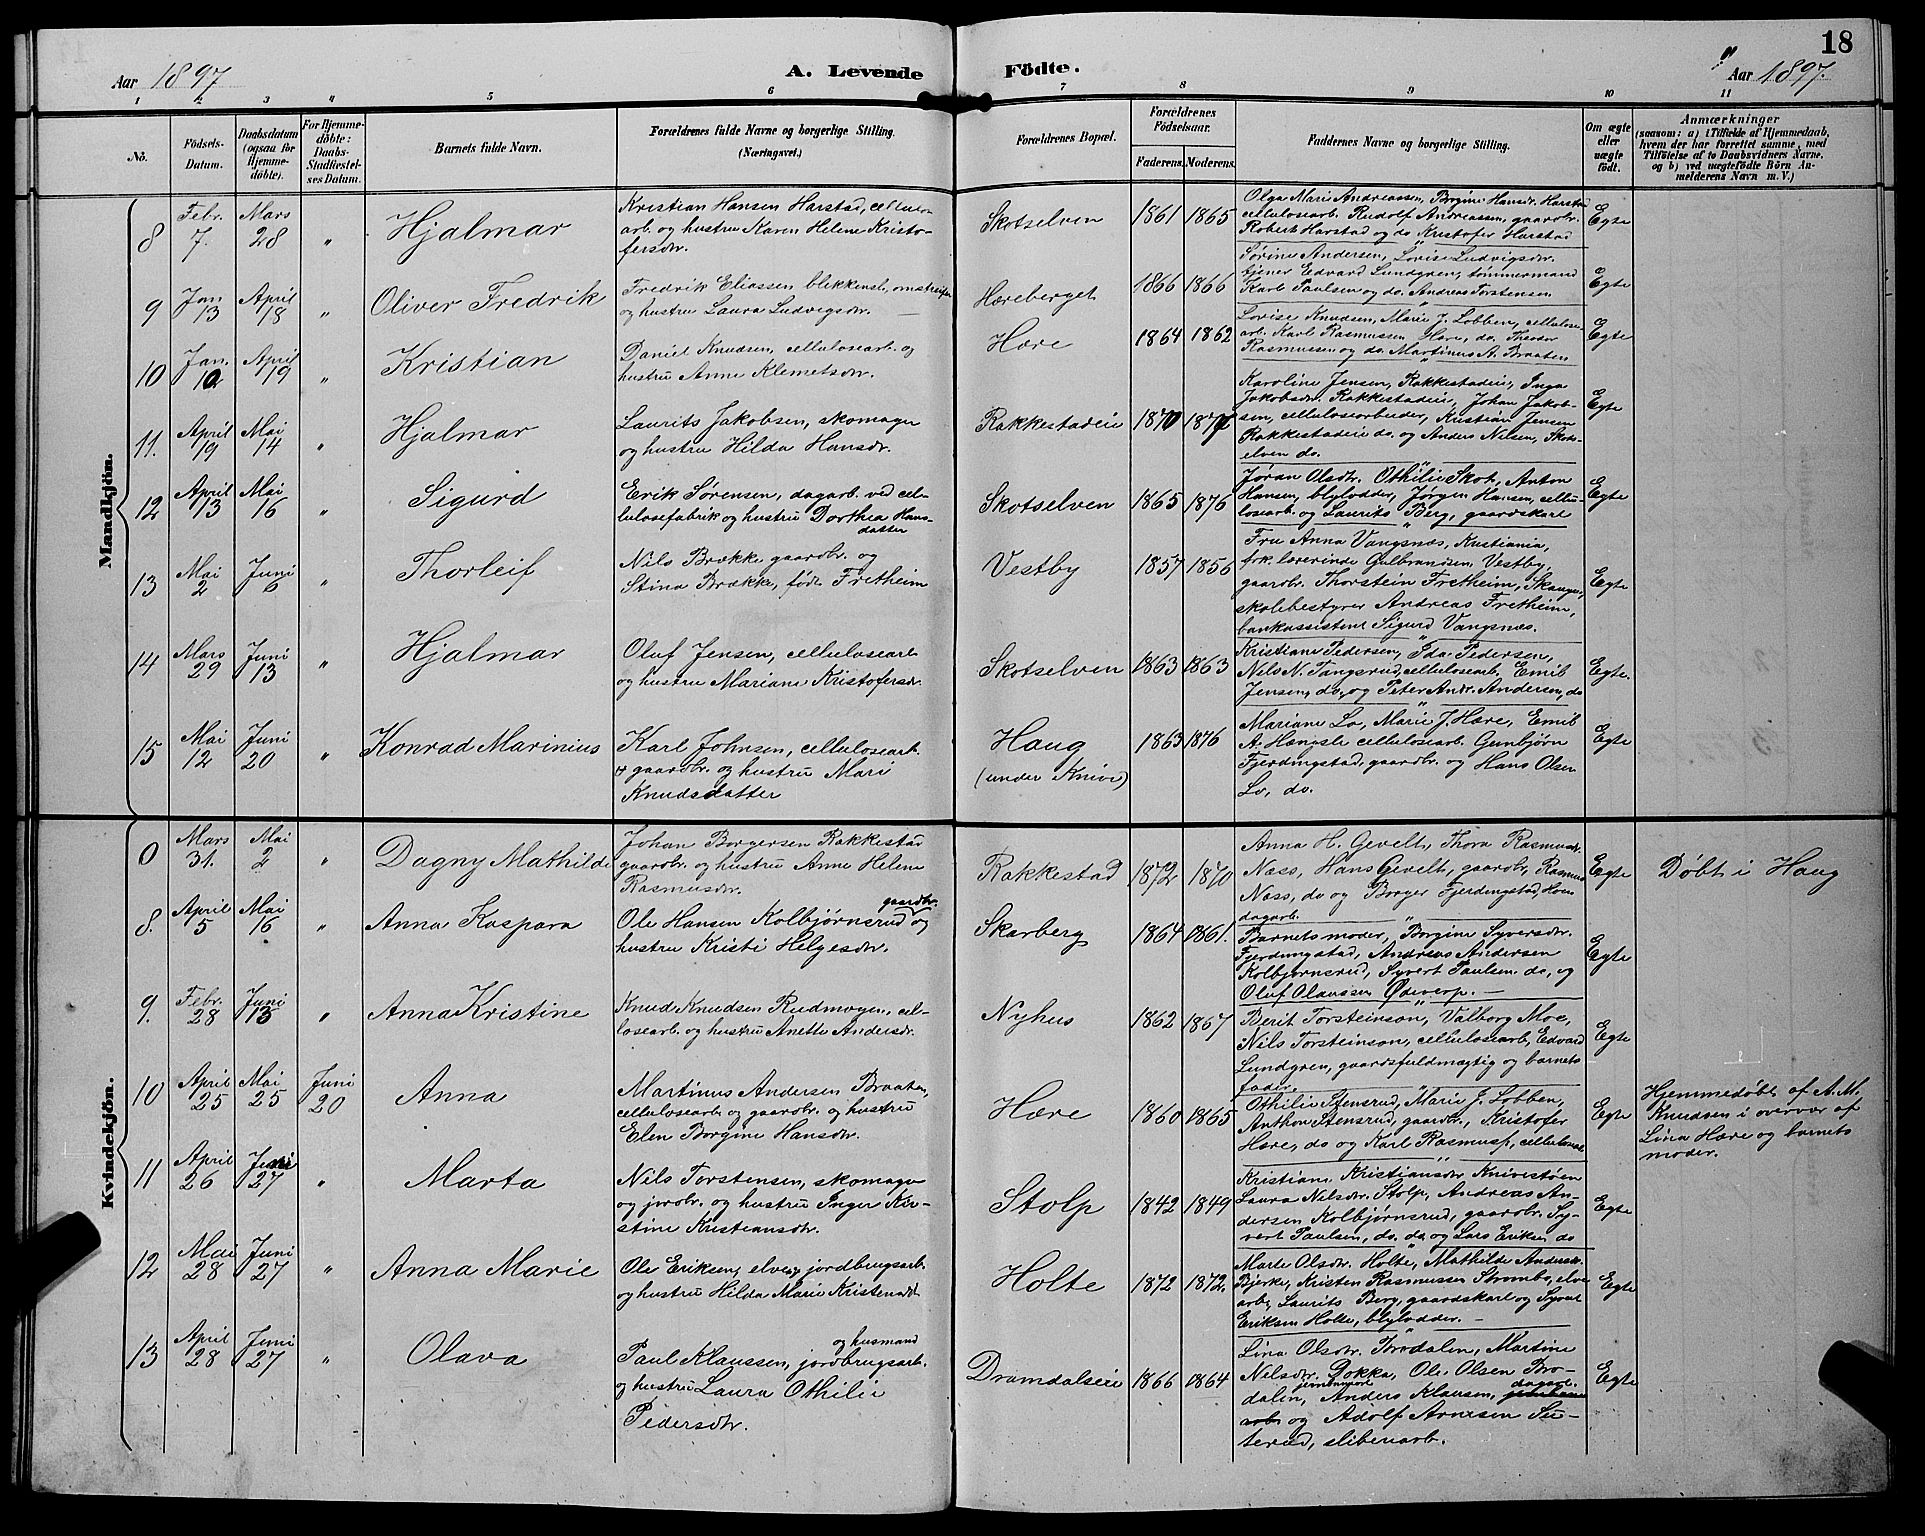 18
Aar 1897
A. Levende
Födte.
" Aar 1897.
1 2 3 4 5 6 7 8 9 10 11
Nô.
Födsels-
Datum.
Daabsdatum
(ogsaa for
Hjemme-
döbte).
For Hjemme-
döbte:
Daabs-
Stadfæstel-
ses Datum.
Barnets fulde Navn.
Forældrenes fulde Navne og borgerlige Stilling.
(Næringsvei.)
Forældrenes Bopæl.
Forældrenes
Födselsaar.
Faderens. Moderens.
Faddernes Navne og borgerlige Stilling.
Om ægte
eller
uægte
födt.
Anmærkninger
(saasom: a) i Tilfælde af Hjemmedaab,
hvem der har forrettet samme, med
Tilföielse af to Daabsvidners Navne,
og b) ved uægtefödte Börn An-
melderens Navn m. V.)
Mandkjön.
8
Febr.
7.
Mars
28
"
Hjalmar
Kristian Hansen Harstad, cellulose
arb. og hustru Karen Helene Kristo-
fersdr.
Skotselven
1861 1865
Olga Marie Andreassen, Borgine Hansdr. Harstad
cellulosearb. Rudolf Andreassen, gaardbr.
Robert Harstad og do Kristofer Harstad
Egte
9
Jan.
13
April
18
"
Oliver Fredrik
Fredrik Eliassen blikkensl., omstreifer
og hustru Laura Ludvigsdr.
Hæreberget
1866 1866
Sørine Andersen, Lovise Ludvigsdr.
tjener Edvard Lundgren, tømmermand
Karl Paulsen og do. Andreas Torstensen
Egte
10
Jan.
10
April
19
"
Kristian
Daniel Knudsen, cellulosearb. og
hustru Anne Klemetsdr.
Hære
1864 1862
Lovise Knudsen, Marie J. Lobben, cellulose
arb. Karl Rasmussen Hære, do. Theodor
Rasmussen og do. Martinus A. Braaten
Egte
11.
April
19
Mai
14
"
Hjalmar
Laurits Jakobsen, skomager
og hustru Hilda Hansdr.
Rakkestadeie
1870
Karoline Jensen, Rakkestadeie, Inga
Jakobsdr. Rakkestadeie, Johan Jakob-
sen, cellulosearbeider, Kristian Jensen
Rakkestadeie do. og Anders Nilsen, Skots-
elven do.
Egte
12
April
13
Mai
16
"
Sigurd
Erik Sørensen, dagarb. ved cel-
lulosefabrik og hustru Dorthea Hans-
datter
Skotselven
1865 1876
Jøran Olsdr. Othilie Skot, Anton
Hansen, blylodder, Jørgen Hansen, cellu-
losearb. og Laurits Berg, gaardskarl
Egte
13
Mai
2
Juni
6
"
Thorleif
Nils Brække, gaardbr. og
Stina Brække, født Fretheim
Vestby
1857 1856
Fru Anna Vangsnæs, Kristiania,
frk. lærerinde Gulbrandsen, Vestby,
gaardbr. Thorstein Fretheim, Skauger,
skolebestyrer Andreas Fretheim,
bankassistent Sigurd Vangsnæs.
Egte
14
Mars
29
Juni
13
"
Hjalmar
Oluf Jensen, cellulosearb.
og hustru Mariane Kristofersdr.
Skotselven
1863 1863
Kristiane Pedersen, Ida Pedersen,
Nils N. Tangsrud, cellulosearb., Emil
Jensen, do, og Peter Andr. Andersen, do
Egte.
15
Mai
12
Juni
20
"
Konrad Marinius
Karl Johnsen, cellulosearb.
& gaardbr. og hustru Mari
Knudsdatter
Haug
(under Knive)
1863 1876
Mariane Lo, Marie J. Hære, Emil
A. Hængsle cellulosearb. Gunbjørn
Fjerdingstad, gaardbr. og Hans Olsen
Lo, do.
Egte
Kvindekjön.
0
Mars
31.
Mai
2
"
Dagny Mathilde
Johan Borgersen Rakkestad
gaardbr. og hustru Anne Helene
Rasmusdr.
Rakkestad
1872 1870
Anna H. Gevelt, Thora Rasmusdr.
Næss, Hans Gevelt, gaardbr., Rasmus
Næss, do og Borger Fjerdingstad,
dagarb.
Egte
Døbt i Haug
8.
April
5
Mai
16
"
Anna Kaspara
Ole Hansen Kolbjørnsrud gaardbr. og
hustru Kristi Helgesdr.
Skarberg
1864 1861.
Barnets moder, Borgine Syversdr.
Fjerdingstad, Andreas Andersen
Kolbjørnsrud, Syvert Paulsen do, og
Oluf Olaussen Ødeverp.
Egte
9.
Febr.
28
Juni
13
"
Anna Kristine
Knud Knudsen Rudmoyen, cel-
losearb. og hustru Anette Andersdr.
Nyhus
1862 1867
Berit Torsteinson, Valborg Moe,
Nils Torsteinson, cellulosearb, Edvard
Lundgren, gaardsfuldmægtig og barnets
fader.
Egte
10
April
25
Mai
25
Juni
20
Anna
Martinus Andersen Braaten,
cellulosearb og gaardbr. og hustru
Elen Borgine Hansdr.
Hære
1860 1865
Othilie Stensrud, Marie J. Lobben,
Anthon Stensrud, gaardbr., Kristofer
Hære, do og Karl Rasmuss, cellulosearb.
Egte
Hjemmedøbt af A. M.
Knudsen i overvær af
Lina Hære og barnets
moder.
11
April
26
Juni
27
"
Marta
Nils Torstensen, skomager
og jordbr. og hustru Inger Kir-
stine Kristiansdr.
Stolp
1842 1849
Kristiane Kristiansdr. Knivestøen
Laura Nilsdr. Stolp, Andreas An-
dersen Kolbjørnsrud, gaardbr. Sy-
vert Paulsen, do. do og Lars Eriksen do
Egte
12
Mai
28
Juni
27
"
Anna Marie
Ole Eriksen, elve og jordbrugsarb.
og hustru Hilda Marie Kristensdr
Holte
1872 1872.
Marte Olsdr. Holte, Mathilde Andersdr.
Bjerke, Kristen Rasmussen Strombo, elve
arb, Laurits Berg, gaardskarl og Syvert
Eriksen Holte, blylodder.
Egte
13
April
28
Juni
27
"
Olava
og husmand
Paul Klaussen, jordbrugsarb.
og hustru Laura Othilie
Pedersdr.
Dramdalseie
1866 1864
Lina Olsdr. Brodalen, Martine
Nilsdr. Dokka, Ole Olsen Bro-
dalen, Anders Klausen, dagarb.
arb. og Adolf Arnesen Su-
terud, sliberiarb.
Egte